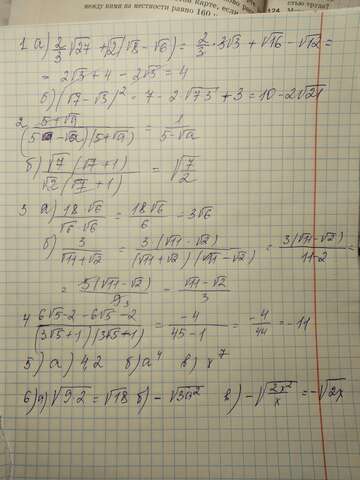 между ними на местности равно 160
1 а) 2/3 √27 + √2(√8 - √6) = 2/3 · 3√3 + √16 - √12 =
= 2√3 + 4 - 2√3 = 4
б) (√7 - √3)² = 7 - 2√7·3 + 3 = 10 - 2√21
2 5+√a / (5 - √a)(5+√a) = 1 / 5-√a
б) √7 (√7 + 1) / √2 (√7 + 1) = √7/2
3 а) 18 · √6 / √6 · √6 = 18√6 / 6 = 3√6
б) 3 / √11 + √2 = 3(√11 - √2) / (√11 + √2)(√11 - √2) = 3(√11 - √2) / 11-2 =
= 3(√11 - √2) / 9 3 = √11 - √2 / 3
4 6√5 - 2 - 6√5 - 2 / (3√5 + 1)(3√5 + 1) = -4 / 45 - 1 = -4 / 44 = -11
5) а) 4,2 б) a⁴ в) x⁷
6) а) √9·2 = √18 б) - √3a² в) - √2x²/x = -√2x